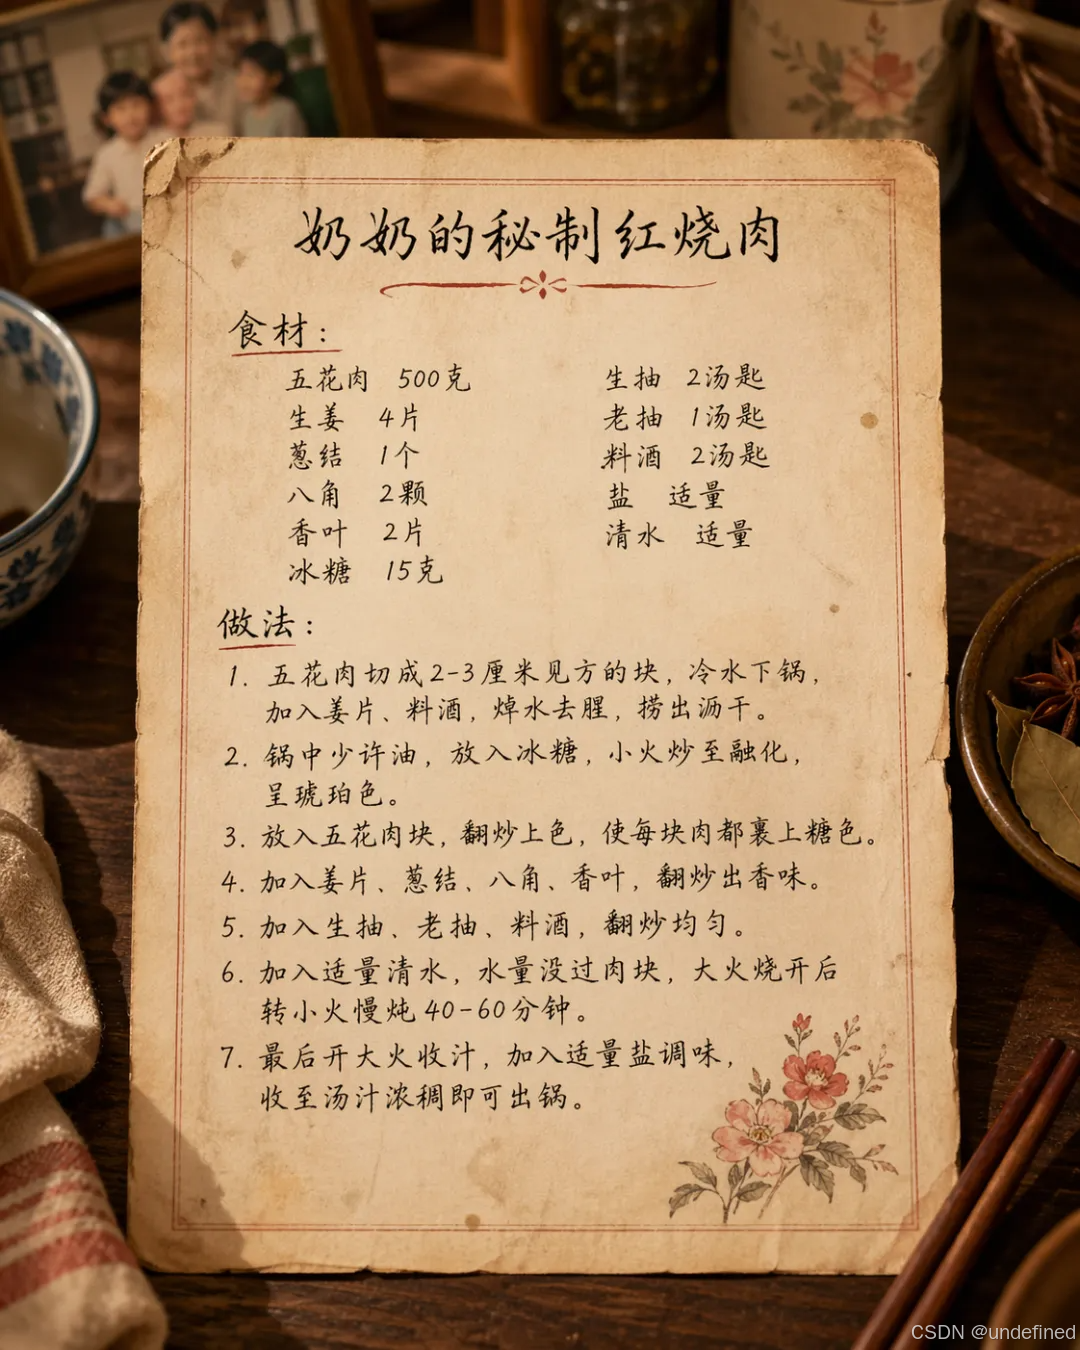 奶奶的秘制红烧肉
食材：
五花肉 500克
生姜 4片
葱结 1个
八角 2颗
香叶 2片
冰糖 15克
生抽 2汤匙
老抽 1汤匙
料酒 2汤匙
盐 适量
清水 适量
做法：
1. 五花肉切成2-3厘米见方的块，冷水下锅，
加入姜片、料酒，焯水去腥，捞出沥干。
2. 锅中少许油，放入冰糖，小火炒至融化，
呈琥珀色。
3. 放入五花肉块，翻炒上色，使每块肉都裹上糖色。
4. 加入姜片、葱结、八角、香叶，翻炒出香味。
5. 加入生抽、老抽、料酒，翻炒均匀。
6. 加入适量清水，水量没过肉块，大火烧开后
转小火慢炖40-60分钟。
7. 最后开大火收汁，加入适量盐调味，
收至汤汁浓稠即可出锅。
CSDN @undefined